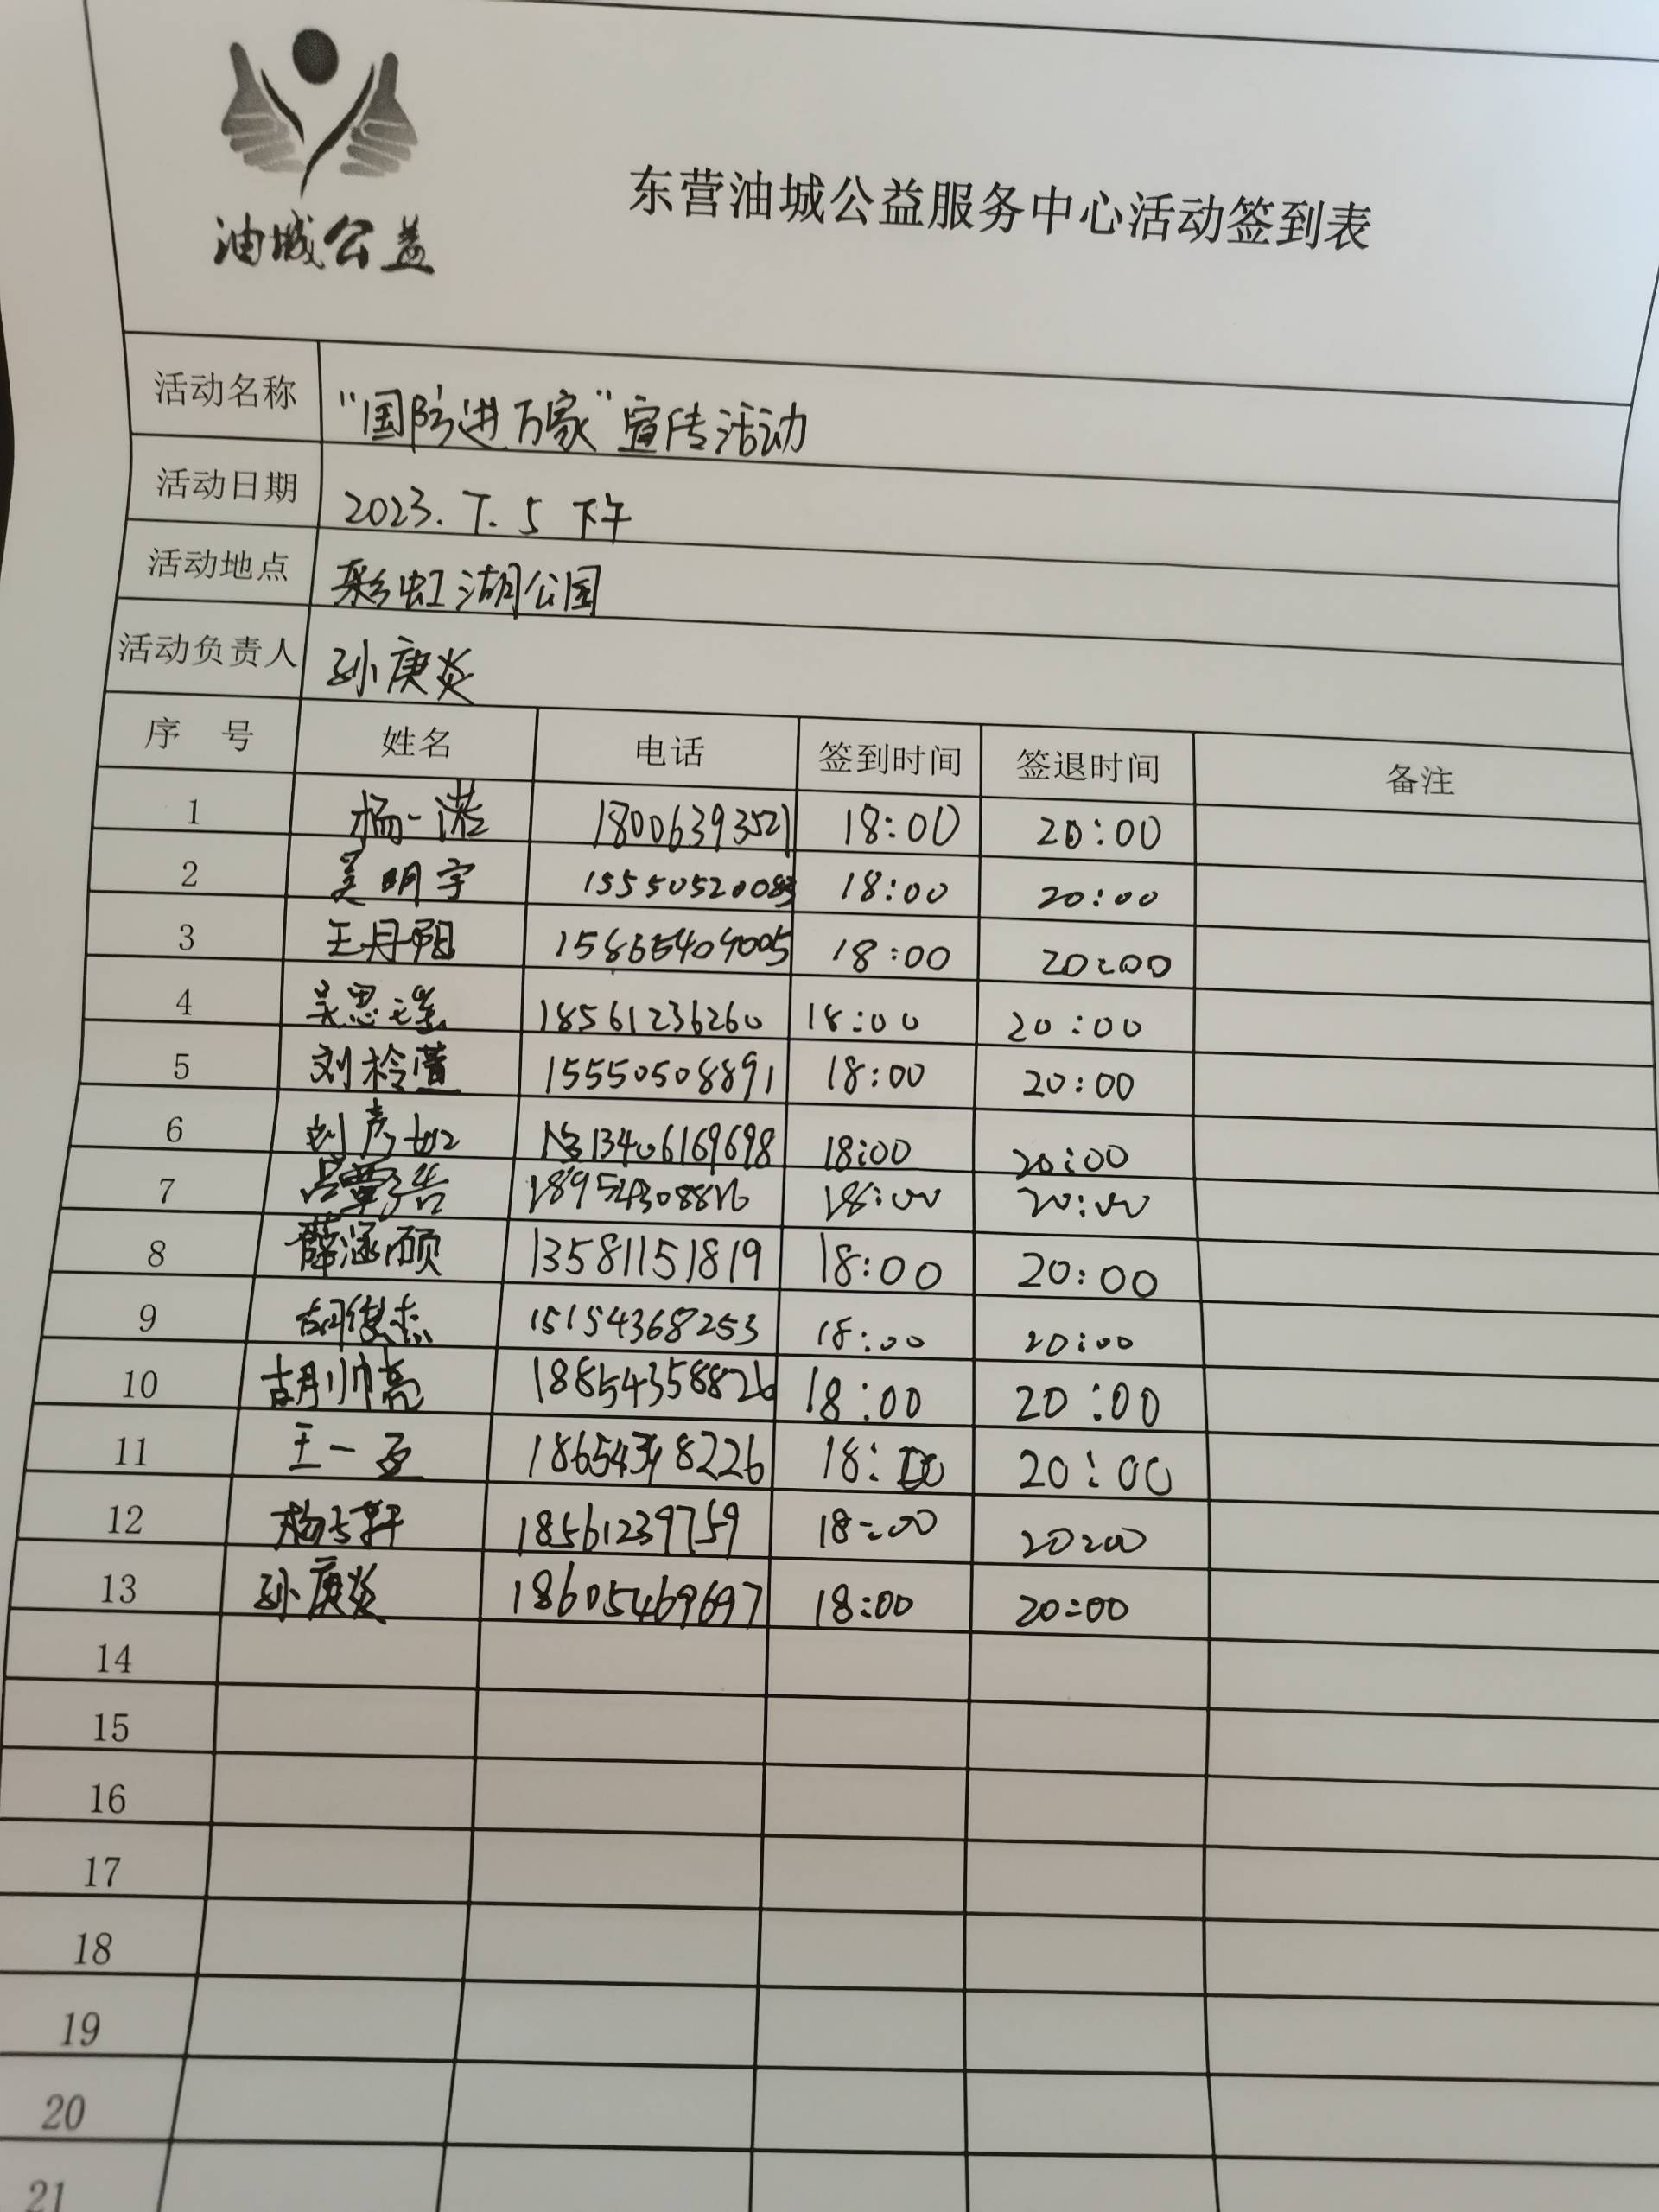 油城公益
东营油城公益服务中心活动签到表
活动名称 “国防进万家”宣传活动
活动日期 2023. 7. 5 下午
活动地点 彩虹湖公园
活动负责人 孙庚炎
序 号 姓名 电话 签到时间 签退时间 备注
1 杨一 18006393521 18:00 20:00
2 吴明宇 15550520083 18:00 20:00
3 王丹阳 18:00 20:00
4 吴思 18561236260 18:00 20:00
5 刘柃萱 15550508891 18:00 20:00
6 刘彦如 13406169698 18:00 20:00
7 18:00 20:00
8 薛涵硕 13581151819 18:00 20:00
9 胡俊杰 15154368253 18:00 20:00
10 胡帅亮 18854358826 18:00 20:00
11 王一 18:00 20:00
12 杨 轩 18561239759 18:00 20:00
13 孙庚炎 18605469697 18:00 20:00
14
15
16
17
18
19
20
21